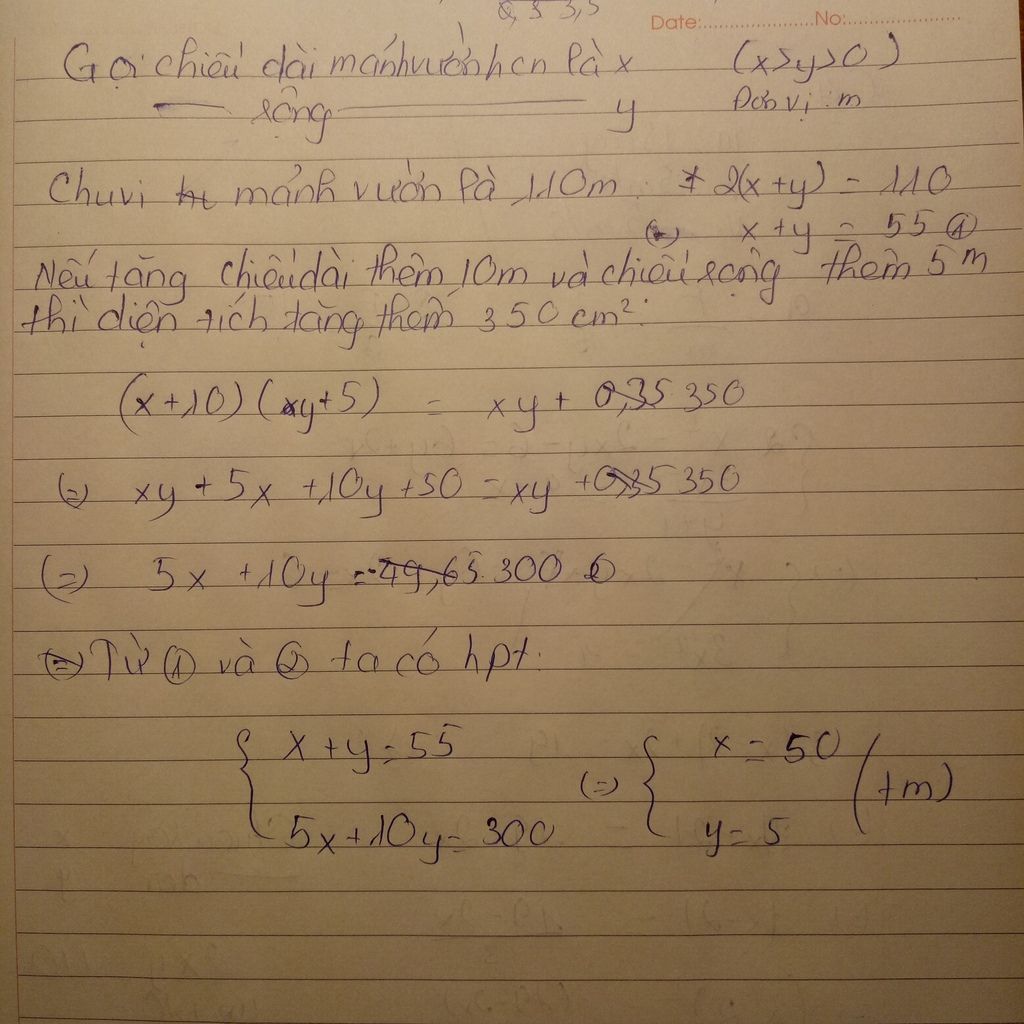 0,3 3,5
Date:....................No:.....................
Gọi chiều dài mảnh vườn hcn là x (x>y>0)
rộng y Đơn vị : m
Chu vi mảnh vườn là 110m. 2(x+y) = 110
(=) x+y = 55 ①
Nếu tăng chiều dài thêm 10m và chiều rộng thêm 5m
thì diện tích tăng thêm 350 cm²:
(x+10)(y+5) = xy + 0,35 350
(=) xy + 5x + 10y + 50 = xy + 0,35 350
(=) 5x + 10y = -49,65 300 ②
(=) Từ ① và ② ta có hpt:
x + y = 55 (=) x = 50 (tm)
5x + 10y = 300 y = 5